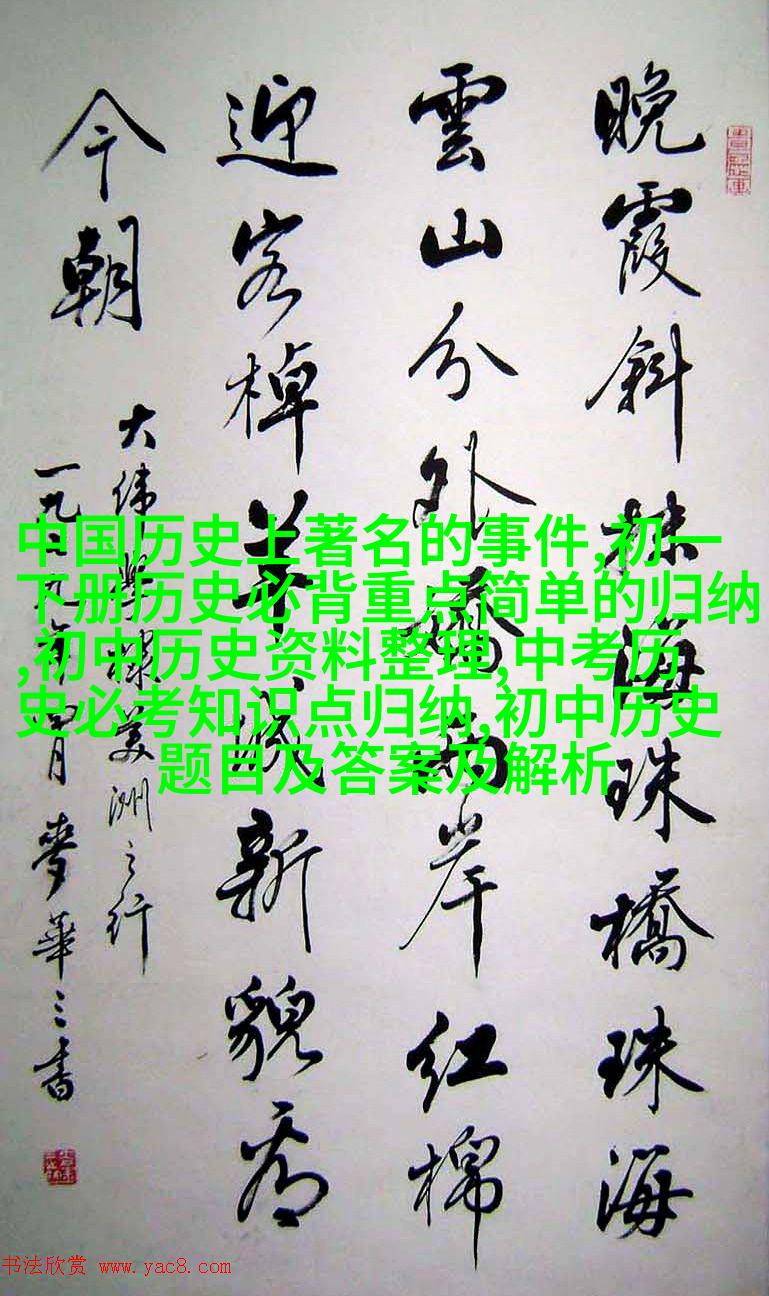 晚霞斜抹海珠橋珠海
雲山分外嬌兩岸紅棉
迎客棹羊城新貌看
今朝
大緯棣美洲之行
一九九年月麥華三書
中国历史上著名的事件,初一
下册历史必背重点简单的归纳
,初中历史资料整理,中考历
史必考知识点归纳,初中历史
题目及答案及解析
书法欣赏 www.yac8.com